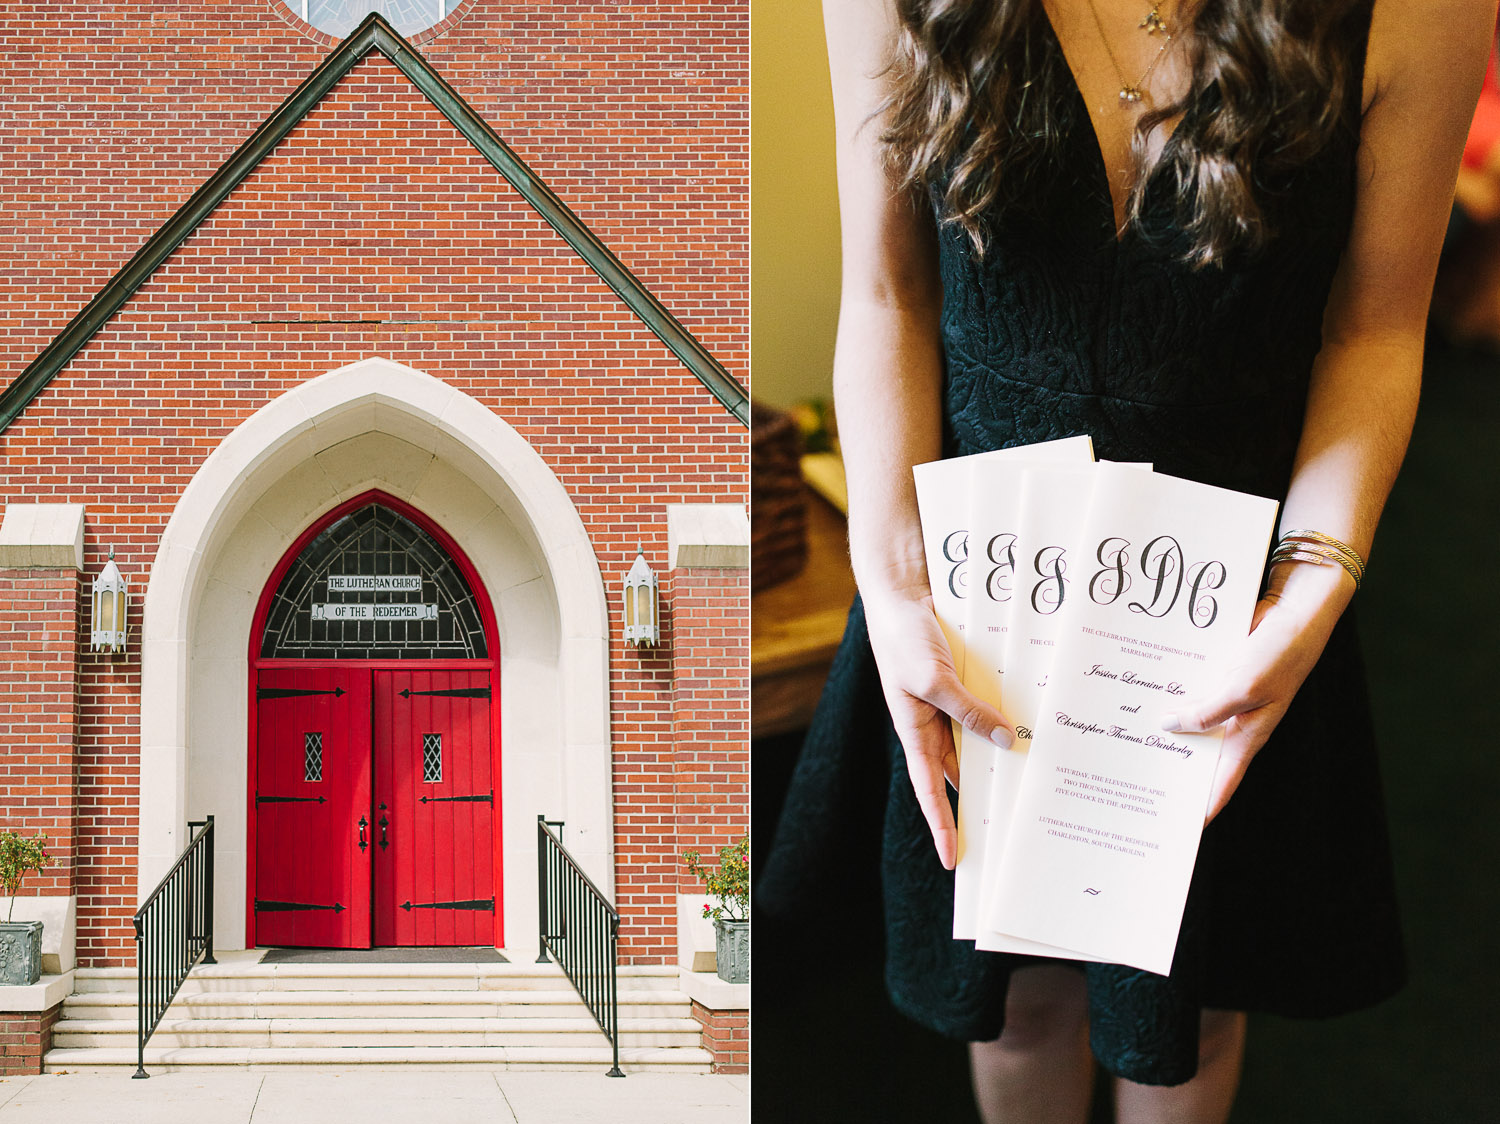 THE LUTHERAN CHURCH
OF THE REDEEMER
JDC
THE CELEBRATION AND BLESSING OF THE
MARRIAGE OF
Jessica Lorraine Lee
and
Christopher Thomas Dunkerley
SATURDAY, THE ELEVENTH OF APRIL
TWO THOUSAND AND FIFTEEN
FIVE O'CLOCK IN THE AFTERNOON
LUTHERAN CHURCH OF THE REDEEMER
CHARLESTON, SOUTH CAROLINA